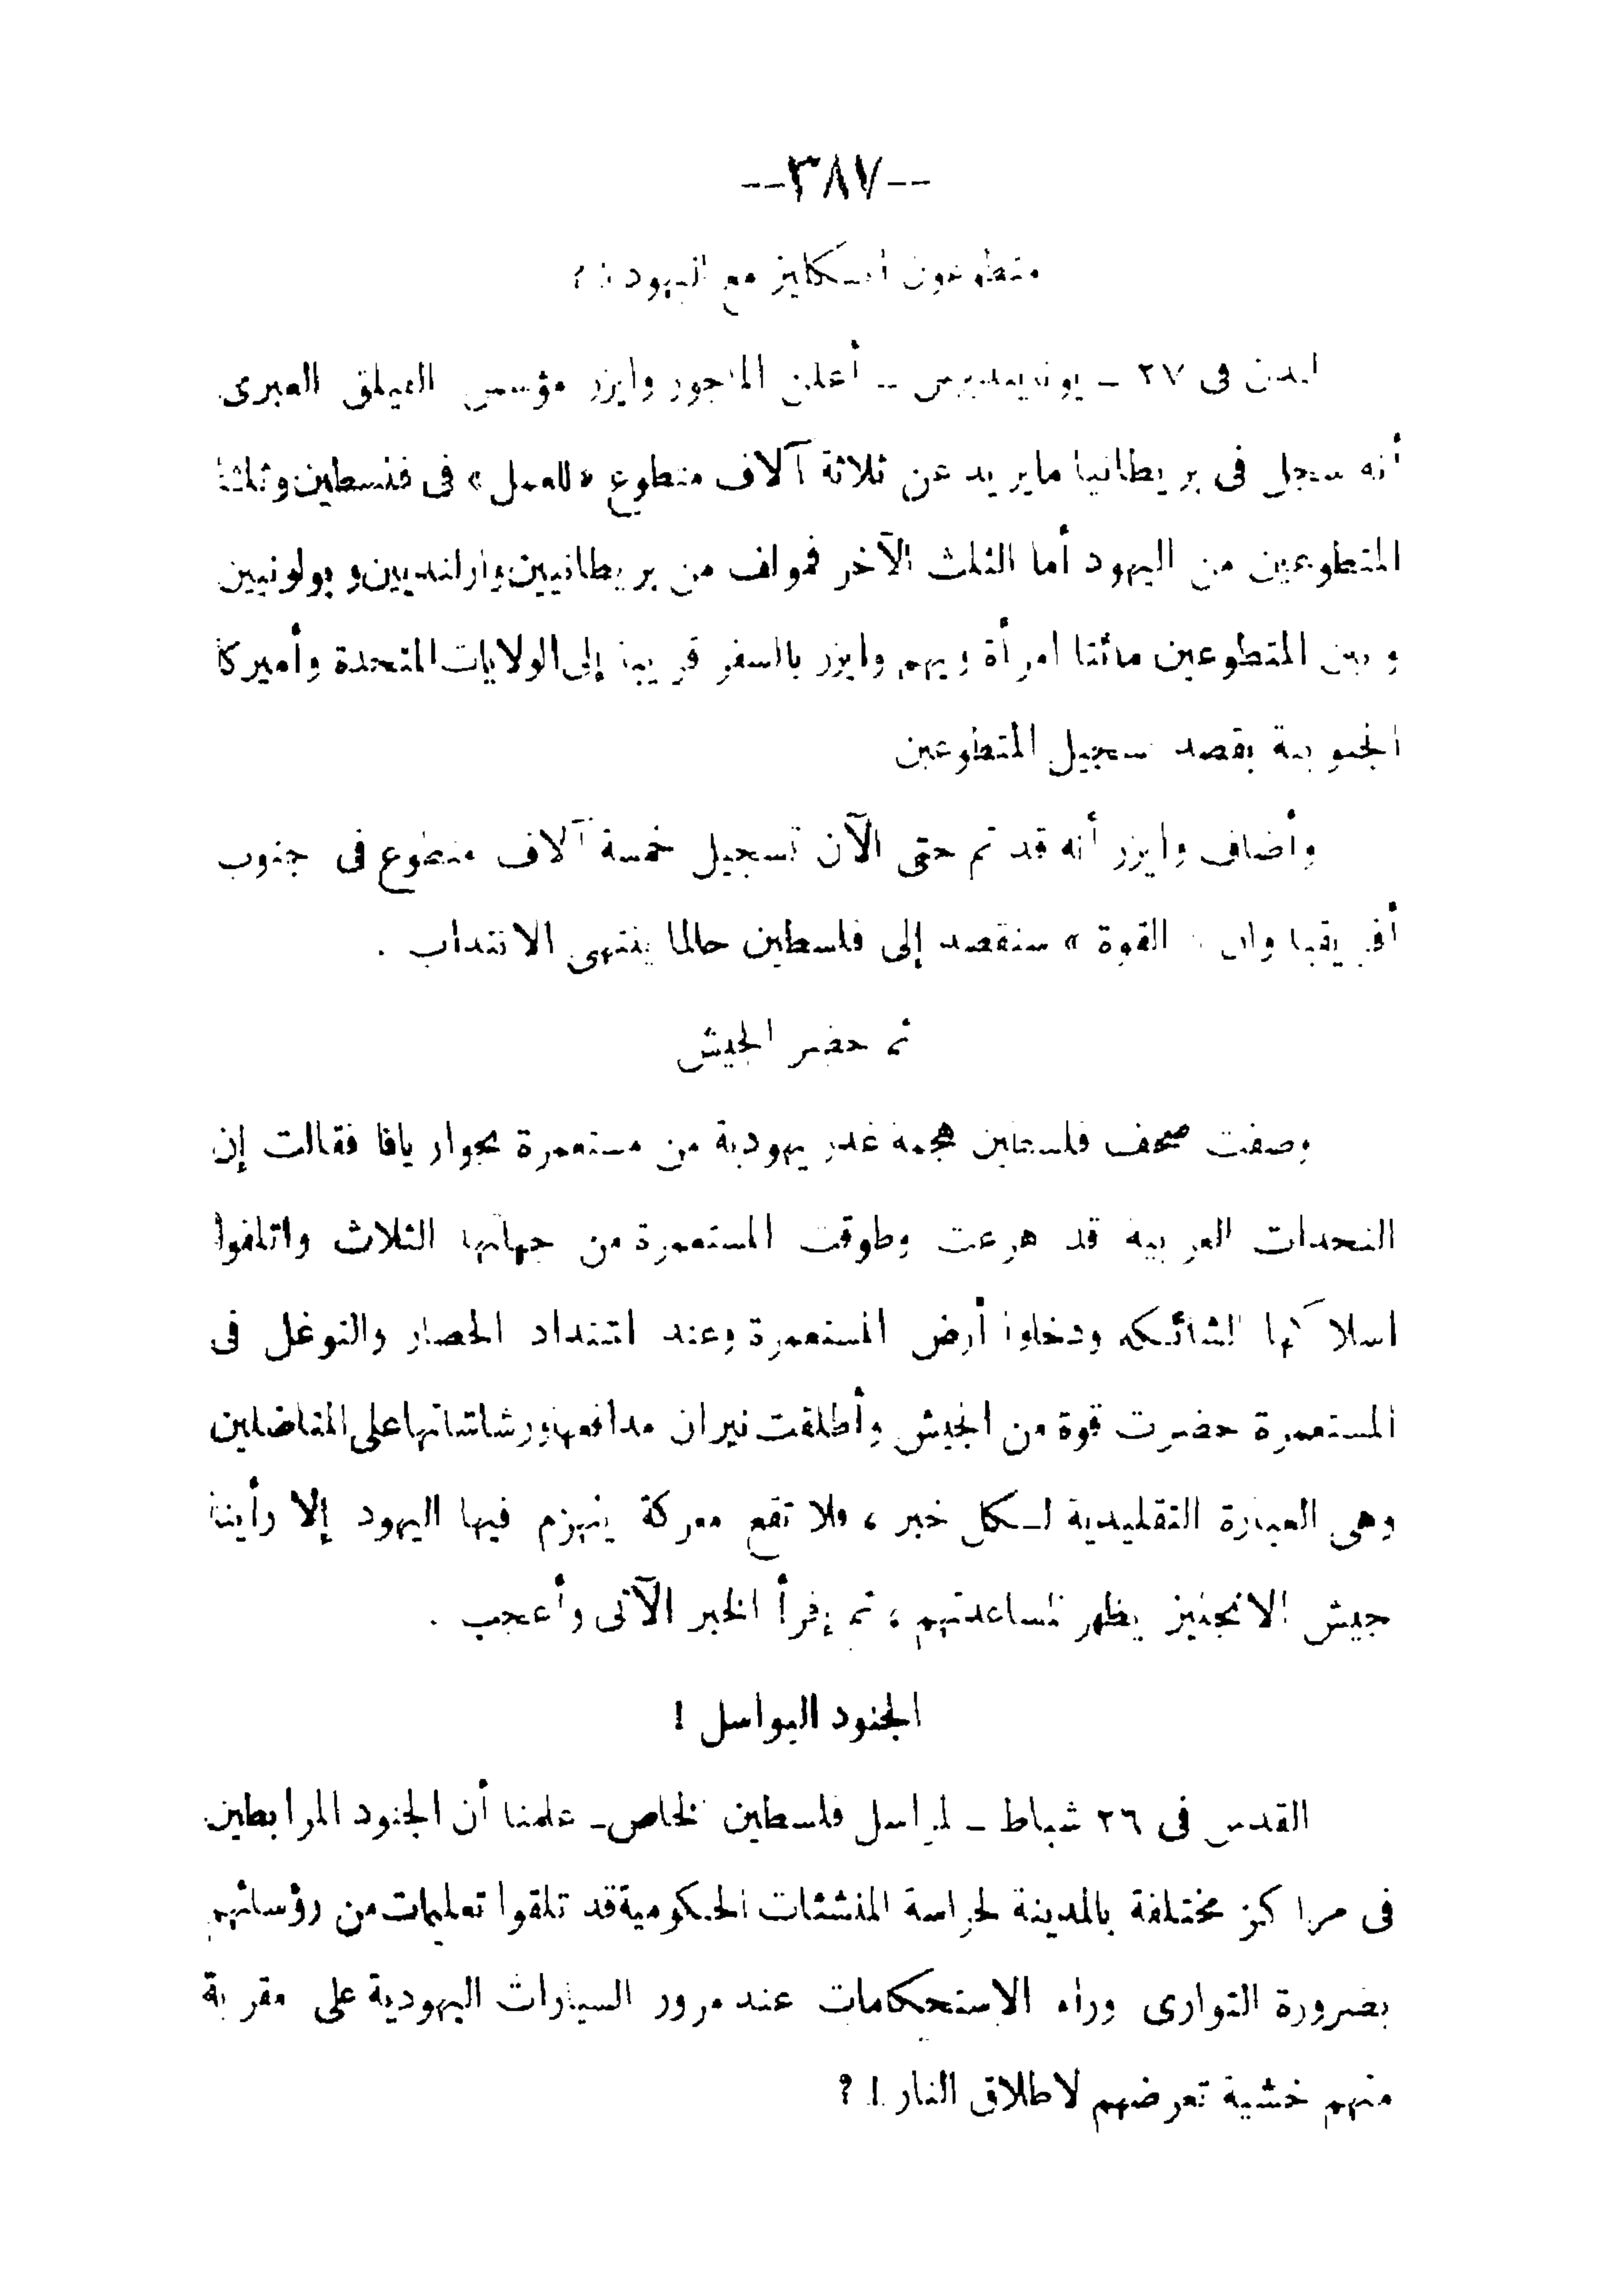 --٣٨٧--
متطوعون انكليز مع اليهود ! ؟
لندن فى ٢٧ – يونيتدبرس – أعلن الماجور وايزر مؤسس الفيلق العبرى
أنه سجل فى بريطانيا مايزيد عن ثلاثة آلاف متطوع «للعمل» فى فلسطين وثلثا
المتطوعين من اليهود أما الثلث الآخر فمؤلف من بريطانيين وارلنديين و بولونيين
و بين المتطوعين مائتا امرأة ويهم وايزر بالسفر قريبا إلى الولايات المتحدة وأميركا
الجنوبية بقصد تسجيل المتطوعين
وأضاف وايزر أنه قد تم حتى الآن تسجيل خمسة آلاف متطوع فى جنوب
أفريقيا وان « القوة » ستقصد إلى فلسطين حالما ينتهى الانتداب .
ثم حضر الجيش
وصفت صحف فلسطين هجمة غدر يهودية من مستعمرة بجوار يافا فقالت إن
النجدات العربية قد هرعت وطوقت المستعمرة من جهاتها الثلاث واتلفوا
اسلاكها الشائكة ودخلوا أرض المستعمرة وعند اشتداد الحصار والتوغل فى
المستعمرة حضرت قوة من الجيش وأطلقت نيران مدافعها ورشاشاتها على المناضلين
وهى العبارة التقليدية لكل خبر ، فلا تقع معركة ينهزم فيها اليهود إلا رأينا
جيش الانجليز يظهر لمساعدتهم ، ثم إقرأ الخبر الآتى وأعجب .
الجنود البواسل !
القدس فى ٢٦ شباط – لمراسل فلسطين الخاص – علمنا أن الجنود المرابطين
فى مراكز مختلفة بالمدينة لحراسة المنشئات الحكومية قد تلقوا تعليمات من رؤسائهم
بضرورة التوارى وراء الاستحكامات عند مرور السيارات اليهودية على مقربة
منهم خشية تعرضهم لاطلاق النار ! ؟